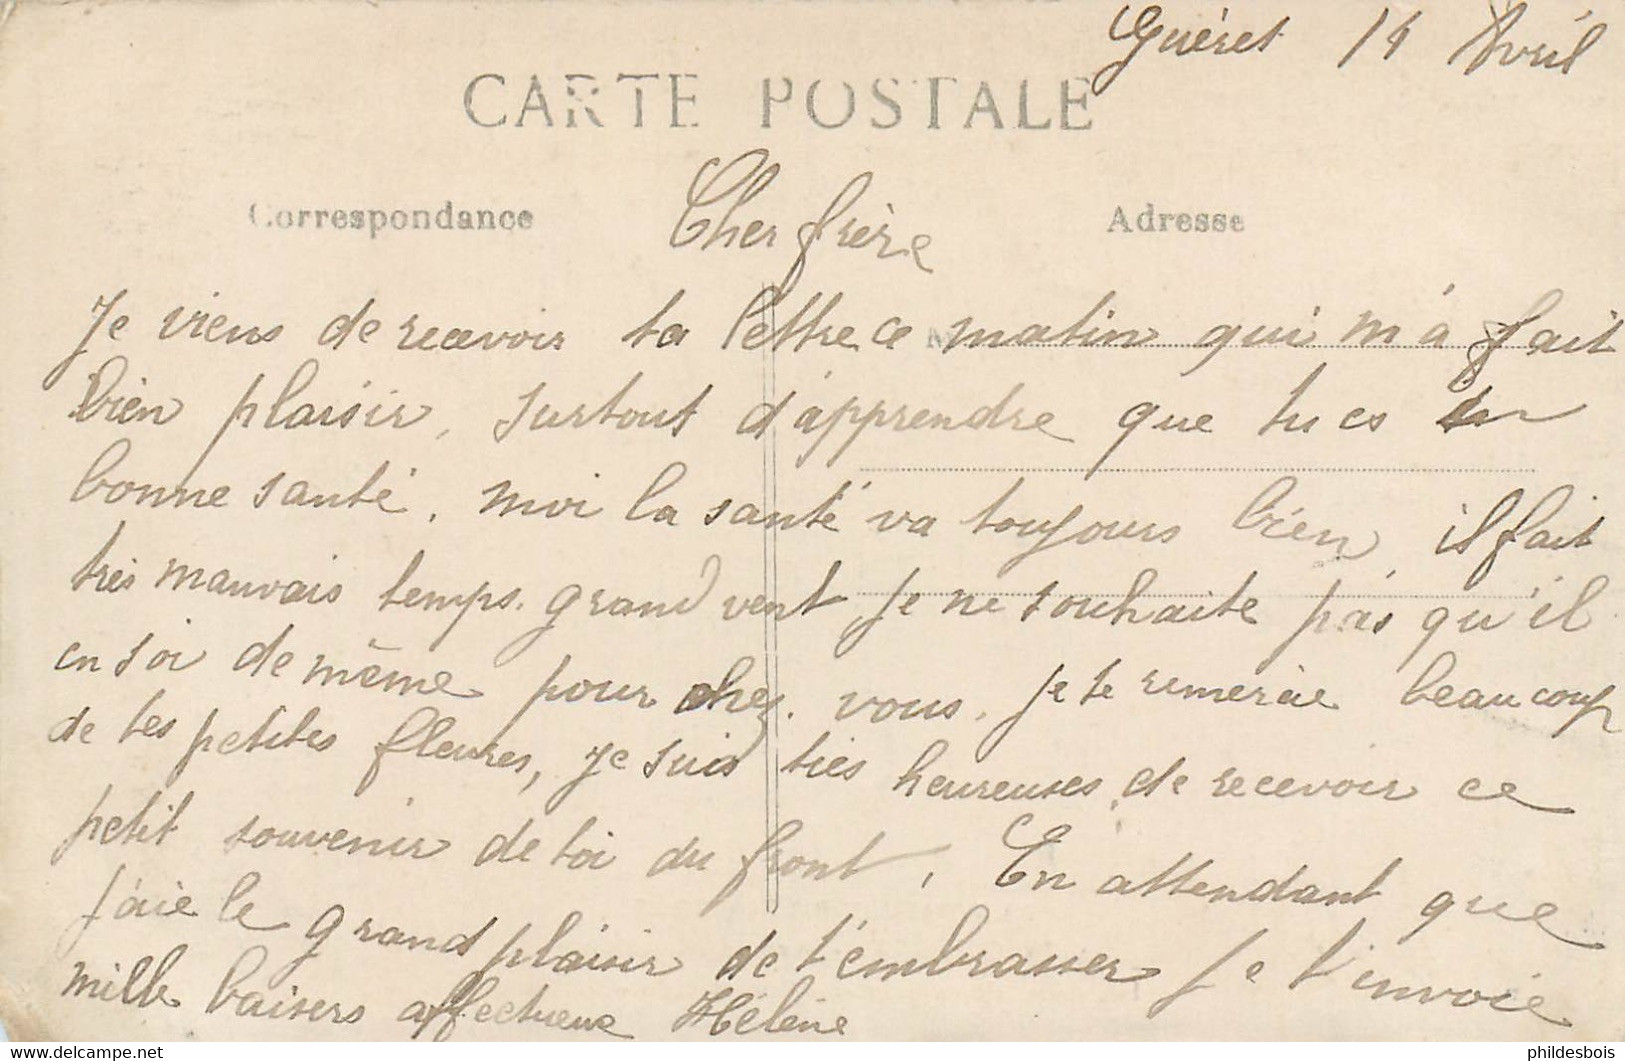 Guéret 14 Avril
CARTE POSTALE
Correspondance
Adresse
Cher frère
Je viens de recevoir ta lettre ce matin qui m'a fait
bien plaisir, surtout d'apprendre que tu es en
bonne santé, moi la santé va toujours bien, il fait
très mauvais temps. grand vent je ne souhaite pas qu'il
en soi de même pour chez vous. je te remercie beaucoup
de tes petites fleures, je suis très heureuses de recevoir ce
petit souvenir de toi du front, En attendant que
j'aie le grand plaisir de t'embrasser je t'envoie
mille baisers affectueux Hélène
phildesbois